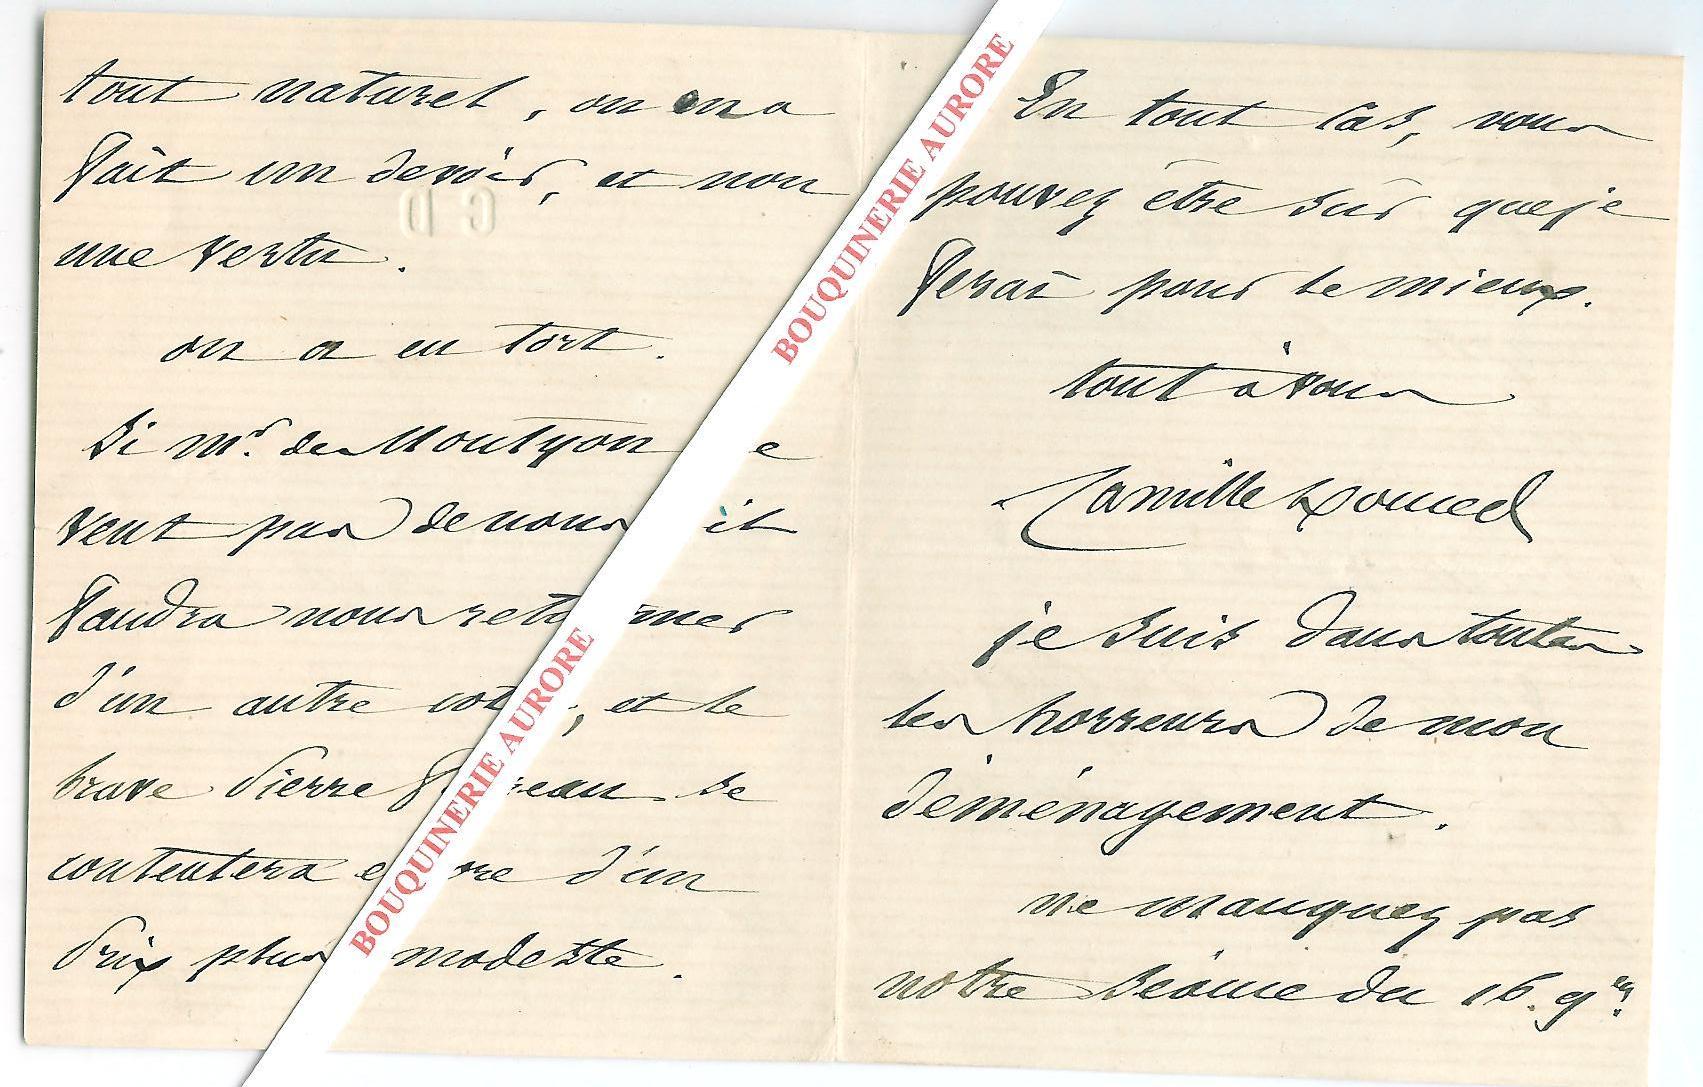 tout naturel, on en a
fait un devoir, et non
C D
une vertu.
on a eu tort.
Si Mr. de Montyon e
veut pas de nous il
faudra nous ret rner
d'un autre cot , et le
brave Pierre eau se
contentera e re d'un
Prix plus modeste.
En tout cas, vous
pouvez être sûr que je
ferai pour le mieux.
tout à vous
Camille Doucet
je suis dans toutes
les horreurs de mon
déménagement.
ne manquez pas
notre séance du 16. 9bre.
BOUQUINERIE AURORE
BOUQUINERIE AURORE